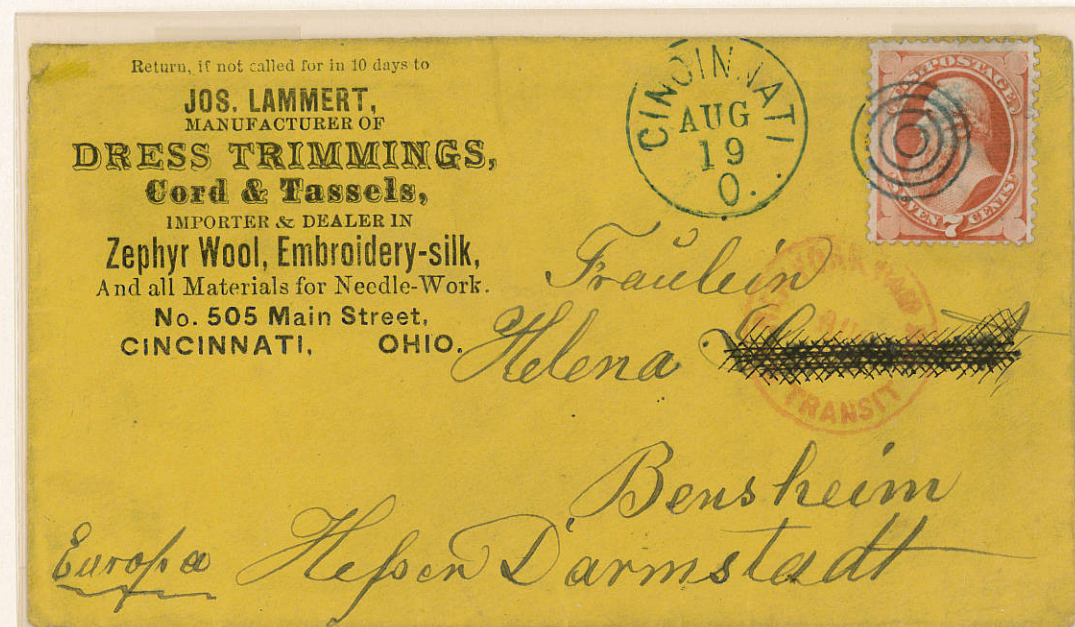 Return, if not called for in 10 days to
JOS. LAMMERT,
MANUFACTURER OF
DRESS TRIMMINGS,
Cord & Tassels,
IMPORTER & DEALER IN
Zephyr Wool, Embroidery-silk,
And all Materials for Needle-Work.
No. 505 Main Street,
CINCINNATI, OHIO.
CINCINNATI
AUG
19
O.
POSTAGE
SEVEN 7 CENTS
YORK PAID
TRANSIT
Fräulein
Helena
Bensheim
Europa Heßen Darmstadt